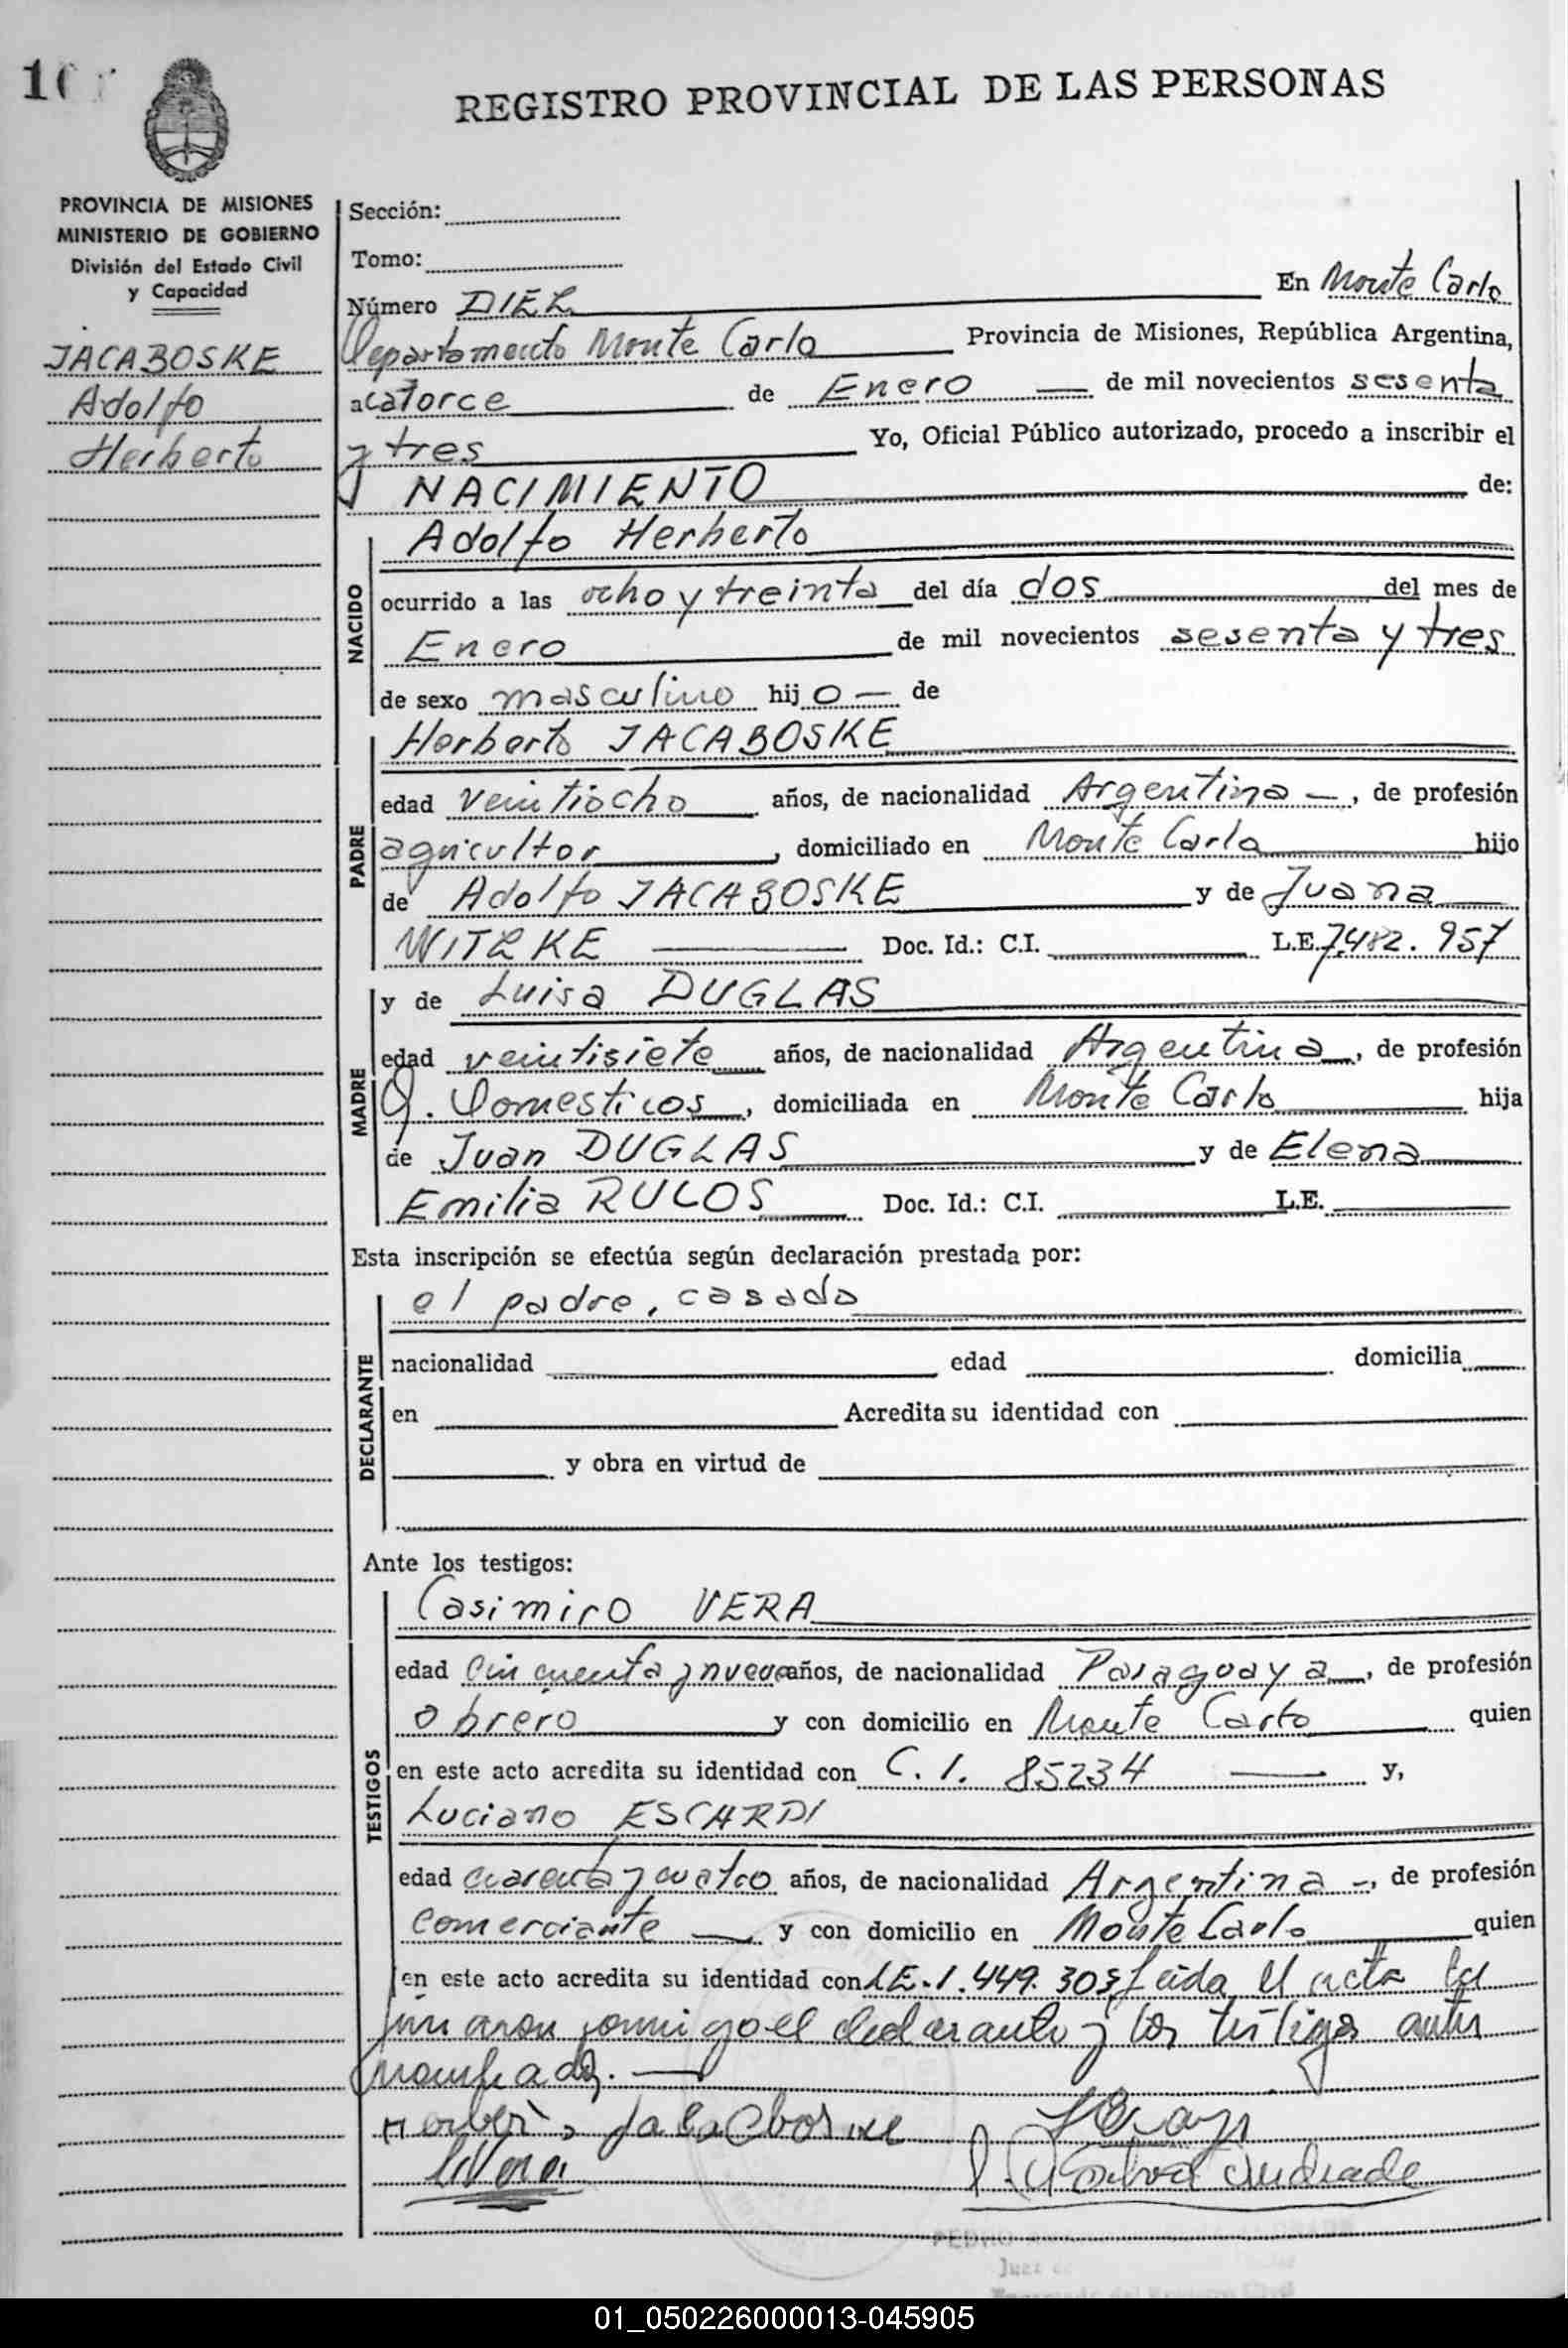 REGISTRO PROVINCIAL DE LAS PERSONAS
PROVINCIA DE MISIONES
MINISTERIO DE GOBIERNO
División del Estado Civil
y Capacidad
JACABOSKE
Adolfo
Herberto
Sección:
Tomo:
Número DIEZ En Monte Carlo
Departamento Monte Carlo Provincia de Misiones, República Argentina,
a catorce de Enero de mil novecientos sesenta
y tres Yo, Oficial Público autorizado, procedo a inscribir el
NACIMIENTO de:
NACIDO
Adolfo Herberto
ocurrido a las ocho y treinta del día dos del mes de
Enero de mil novecientos sesenta y tres
de sexo masculino hijo de
PADRE
Herberto JACABOSKE
edad veintiocho años, de nacionalidad Argentina, de profesión
agricultor, domiciliado en Monte Carlo hijo
de Adolfo JACABOSKE y de Juana
WITZKE Doc. Id.: C.I. L.E. 7.482.957
MADRE
y de Luisa DUGLAS
edad veintisiete años, de nacionalidad Argentina, de profesión
Q. Domesticos, domiciliada en Monte Carlo hija
de Juan DUGLAS y de Elena
Emilia RULOS Doc. Id.: C.I. L.E.
Esta inscripción se efectúa según declaración prestada por:
DECLARANTE
el padre, casado
nacionalidad edad domicilia
en Acredita su identidad con
y obra en virtud de
Ante los testigos:
TESTIGOS
Casimiro VERA
edad cincuenta y nueve años, de nacionalidad Paraguaya, de profesión
obrero y con domicilio en Monte Carlo quien
en este acto acredita su identidad con C. I. 85234 y,
Luciano ESCARDI
edad cuarenta y cuatro años, de nacionalidad Argentina, de profesión
comerciante y con domicilio en Monte Carlo quien
en este acto acredita su identidad con LE. 1.449.303 Leida el acta la
firmaron conmigo el declarante y los testigos antes
nombrados.
PEDRO
Juez
Encargado del Registro Civil
01_050226000013-045905